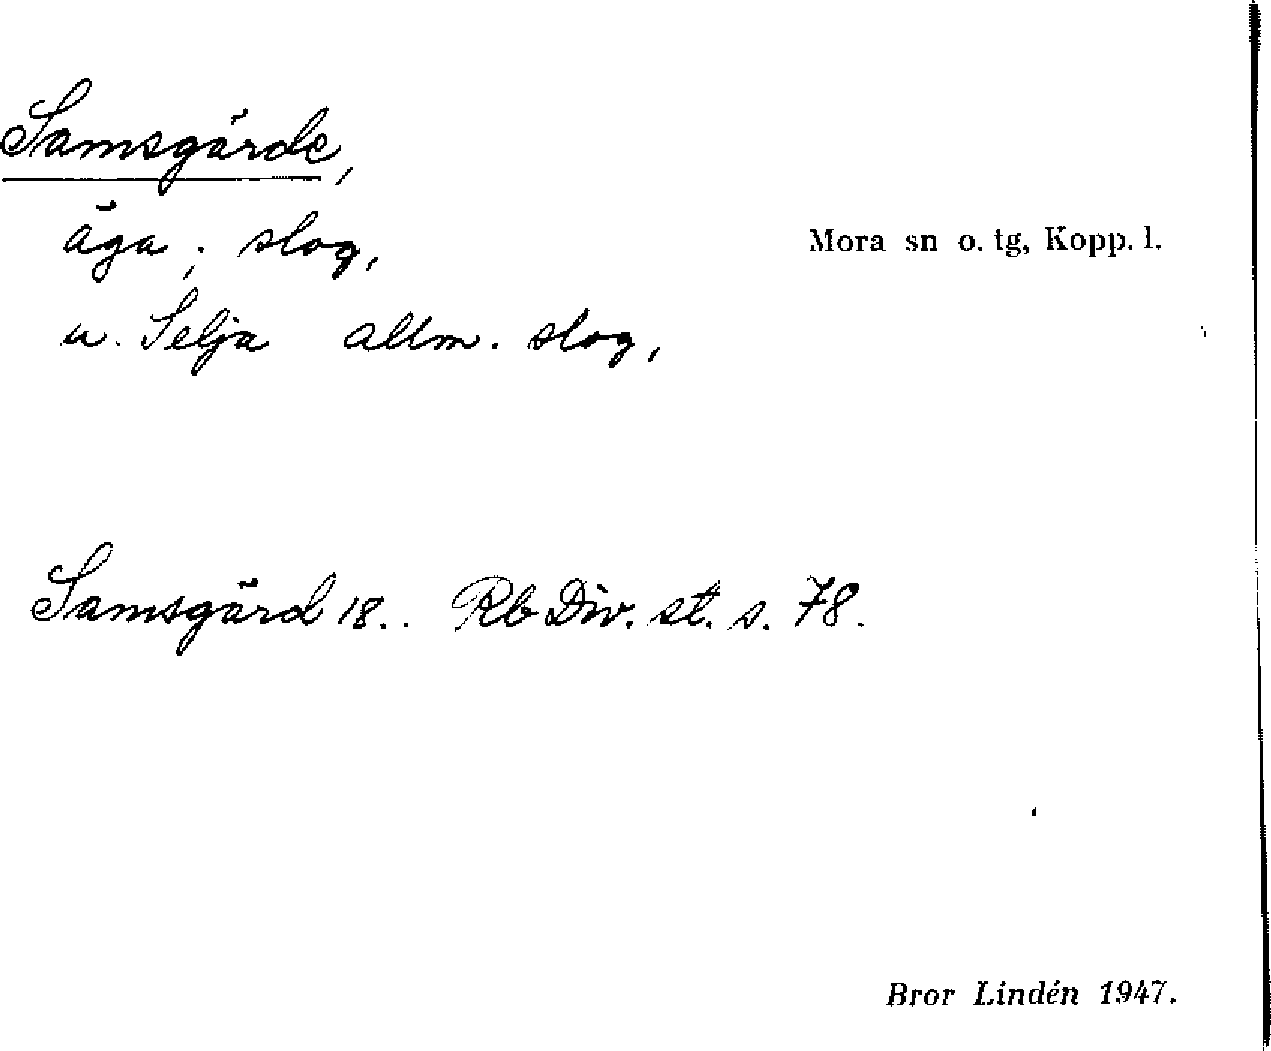 Samsgärde,
äga; slog,
Mora sn o. tg, Kopp. l.
u. Selja allm. slog,
Samsgärd 18.. Rb Div. st. s. 78.
Bror Lindén 1947.